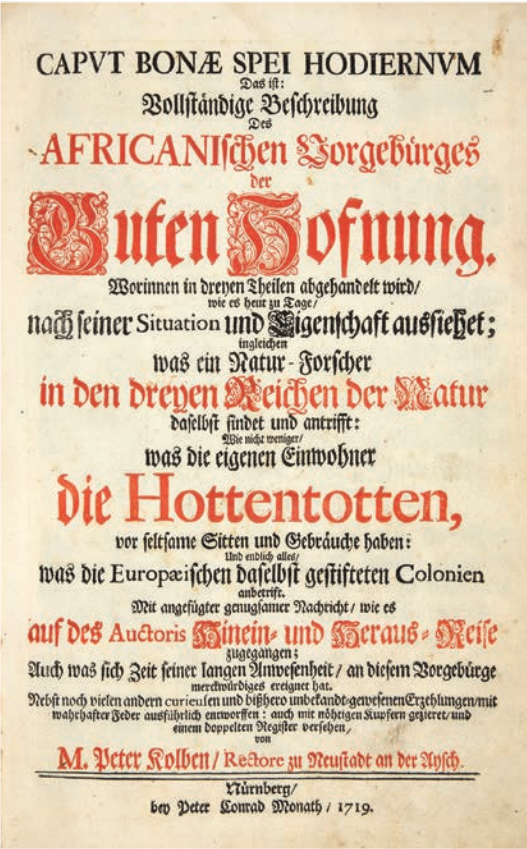 CAPVT BONÆ SPEI HODIERNVM
Das ist:
Vollständige Beschreibung
Des
AFRICANIschen Vorgebürges
der
Guten Hofnung.
Worinnen in dreyen Theilen abgehandelt wird/
wie es heut zu Tage/
nach seiner Situation und Eigenschaft aussiehet;
ingleichen
was ein Natur-Forscher
in den dreyen Reichen der Natur
daselbst findet und antrifft:
Wie nicht weniger/
was die eigenen Einwohner
die Hottentotten,
vor seltsame Sitten und Gebräuche haben:
Und endlich alles/
was die Europæischen daselbst gestifteten Colonien
anbetrift.
Mit angefügter genugsamer Nachricht/ wie es
auf des Auctoris Hinein- und Heraus-Reise
zugegangen;
Auch was sich Zeit seiner langen Anwesenheit/ an diesem Vorgebürge
merckwürdiges ereignet hat.
Nebst noch vielen andern curieusen und bißhero unbekandt-gewesenen Erzehlungen/mit
wahrhafter Feder ausführlich entworffen: auch mit nöhtigen Kupfern gezieret/und
einem doppelten Register versehen/
von
M. Peter Kolben/ Rectore zu Neustadt an der Aysch.
Nürnberg/
bey Peter Conrad Monath/ 1719.